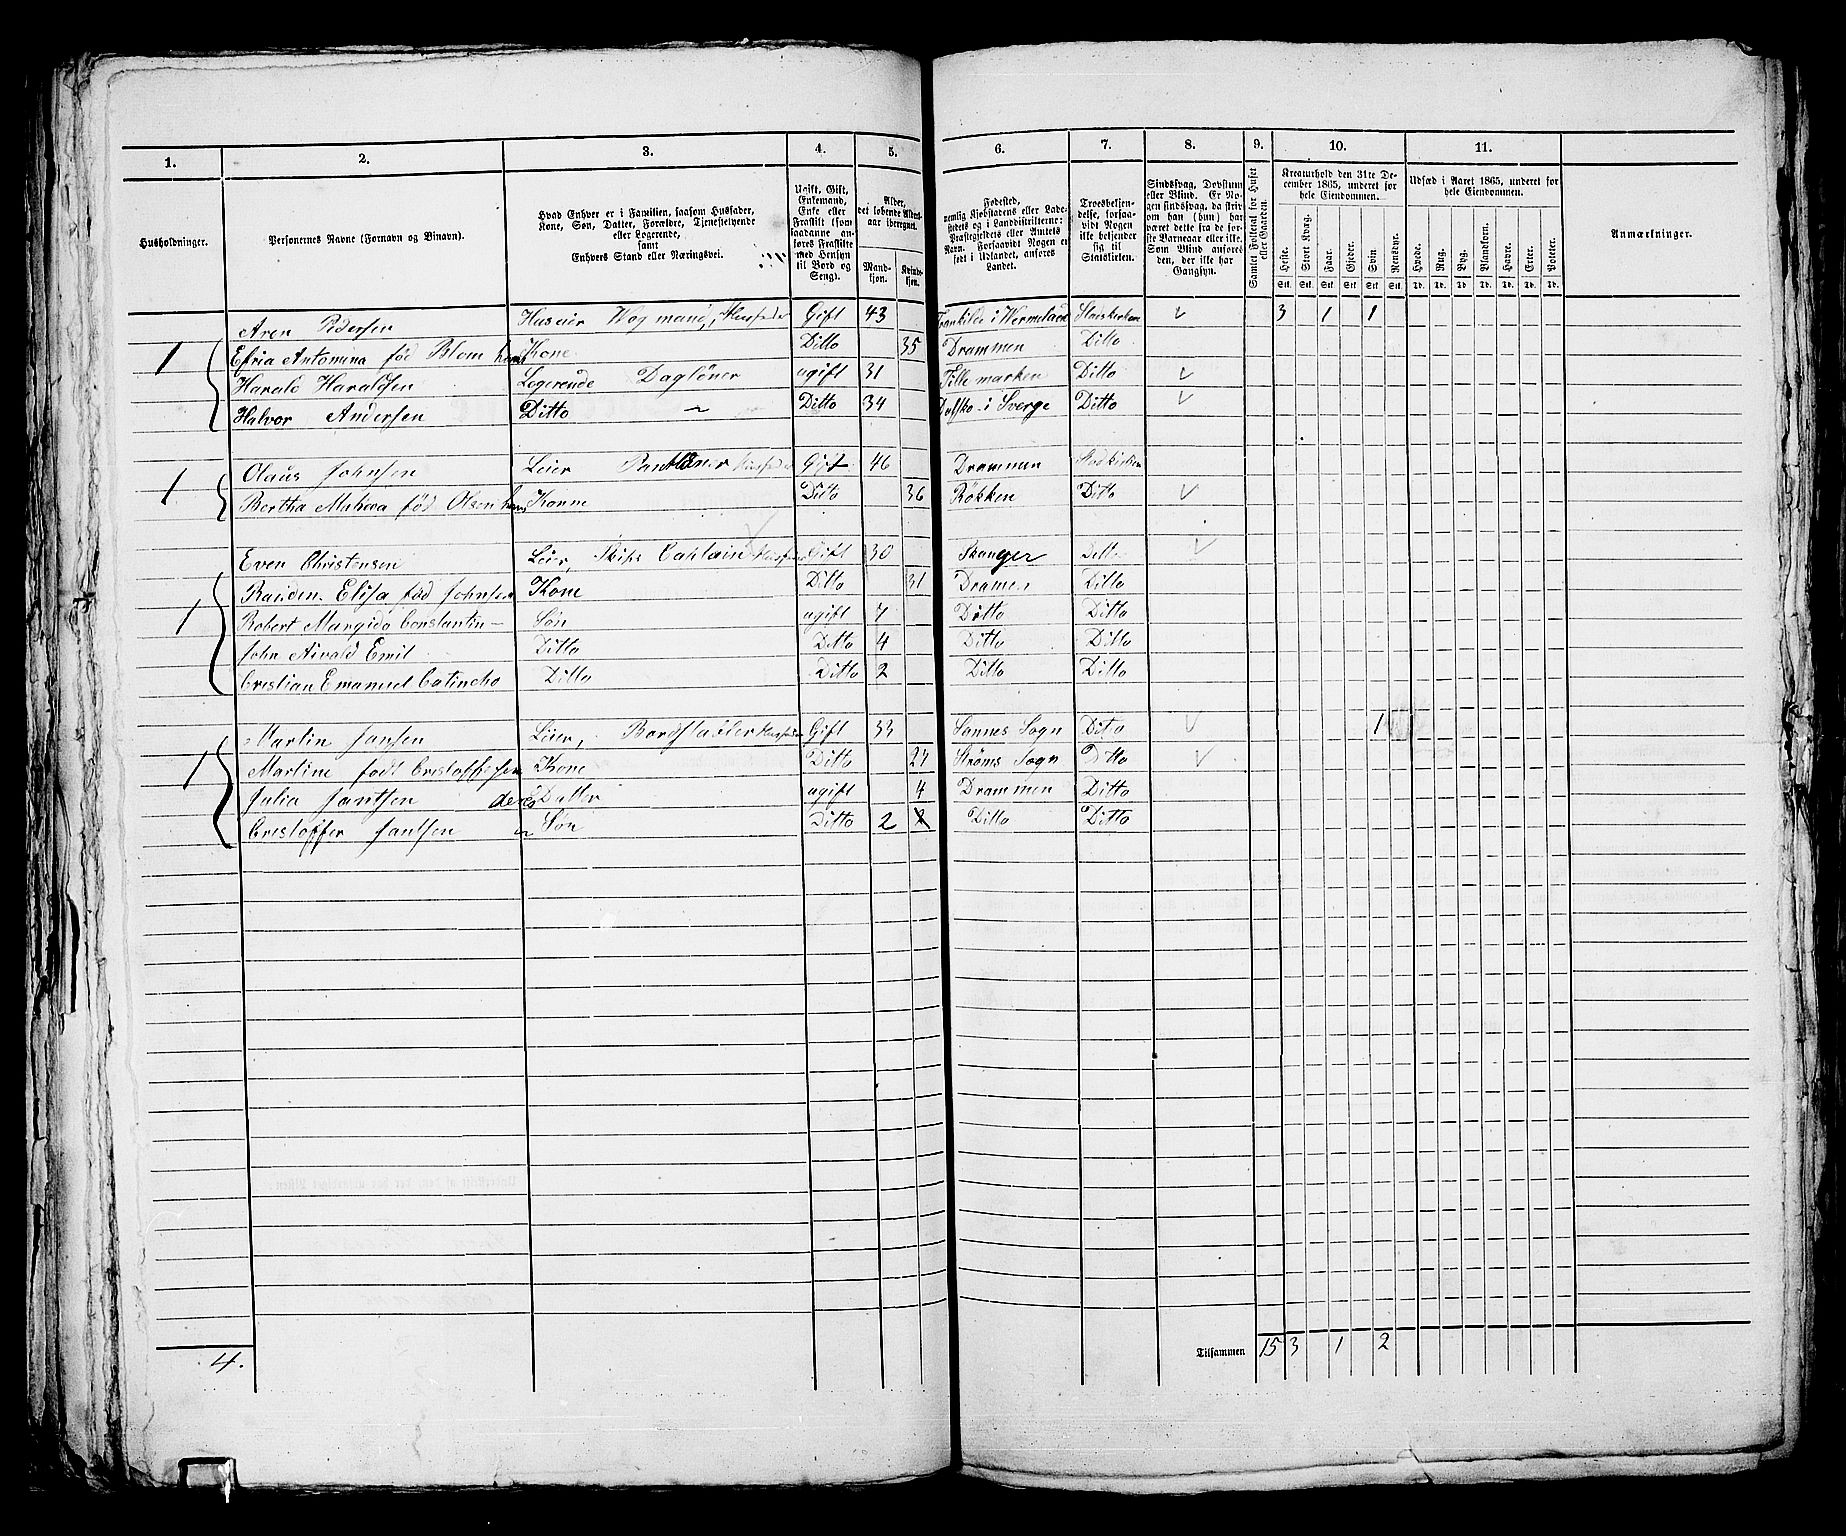 1. 2. 3. 4. 5. 6. 7. 8. 9. 10. 11.
Husholdninger.
Personernes Navne (Fornavn og Binavn).
Hvad Enhver er i Familien, saasom Husfader,
Kone, Søn, Datter, Forældre, Tjenestetyende
eller Logerende,
samt
Enhvers Stand eller Næringsvei.
Ugift, Gift,
Enkemand,
Enke eller
Fraskilt (som
saadanne an-
føres Fraskilte
med Hensyn
til Bord og
Seng).
Alder,
det løbende Alders-
aar iberegnet.
Mand-
kjøn.
Kvind-
kjøn.
Fødested,
nemlig Kjøbstadens eller Lade-
stedets og i Landdistrikterne:
Præstegjeldets eller Amtets
Navn. Forsaavidt Nogen er
født i Udlandet, anføres
Landet.
Troesbekjen-
delse, forsaa-
vidt Nogen
ikke bekjender
sig til
Statskirken.
Sindssvag, Døvstum
eller Blind. Er No-
gen sindssvag, da skriv
om han (hun) har
været dette fra de før-
ste Barneaar eller ikke.
Som Blind anføres
den, der ikke har
Gangsyn.
Samlet Folketal for Huset
eller Gaarden.
Kreaturhold den 31te De-
cember 1865, underet for
hele Eiendommen.
Heste. Stort Kvæg. Faar. Gjeder. Svin Rensdyr.
Stk. Stk. Stk. Stk. Stk. Stk.
Udsæd i Aaret 1865, underet for
hele Eiendommen.
Hvede. Rug. Byg. Blandkorn. Havre. Erter. Poteter.
Td. Td. Td. Td. Td. Td. Td.
Anmærkninger.
Aren Pedersen Huseier Wogmand, Husfader Gift 43 i Wermeland Statskirken 3 1 1
1 Antomina fød Blom hans Kone Ditto 35 Drammen Ditto
Harald Haraldsen Logerende Dagløner ugift 31 Tillemarken Ditto
Halvor Andersen Ditto Ditto 34 Dalsko i Sverge Ditto
Olaus Johnsen Leier Husfader Gift 46 Drammen Statskirken
1 Bertha Mathea fød Olsen hans Konne Ditto 36 Røkken Ditto
Even Christensen Leier, Skibs Captain Husfader Gift 30 Ditto
Elisa fød Johnsen Kone Ditto 31 Dramen Ditto
1 Robert Constantin Søn ugift 7 Ditto Ditto
John Emil Ditto Ditto 4 Ditto Ditto
Cristian Emanuel Ditto Ditto 2 Ditto Ditto
Martin Jansen Leier, Husfader Gift 33 Sannes Sogn Dito 1
1 Martine født Cristoffersen Kone Ditto 27 Strøms Sogn Ditto
Julia Jantsen deres Datter ugift 4 Drammen Ditto
Cristoffer Jantsen Søn Ditto 2 Ditto Ditto
4. Tilsammen 15 3 1 2